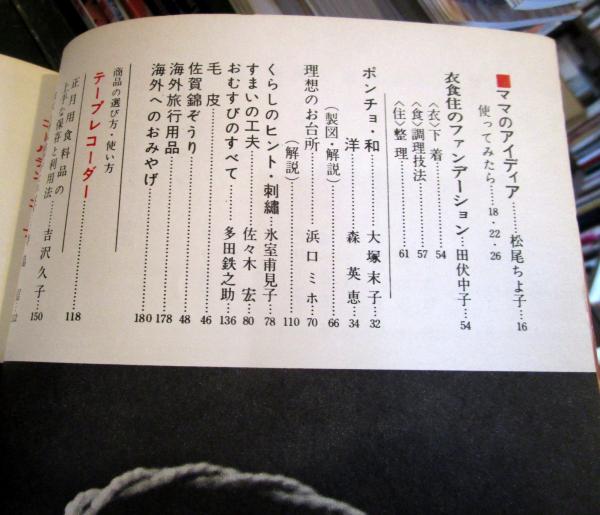 ■ママのアイディア………松尾ちよ子…16
使ってみたら……18・22・26
衣食住のファンデーション…田伏中子…54
〈衣〉下着………54
〈食〉調理技法………57
〈住〉整理………61
ポンチョ・和………大塚末子…32
洋………森英恵…34
(製図・解説)………66
理想のお台所………浜口ミホ…70
(解説)………110
くらしのヒント・刺繡…氷室甫見子…78
すまいの工夫………佐々木宏…80
おむすびのすべて………多田鉄之助…136
毛皮………46
佐賀錦ぞうり………48
海外旅行用品………178
海外へのおみやげ………180
商品の選び方・使い方
テープレコーダー………118
正月用食料品の
上手な保存と利用法………吉沢久子…150